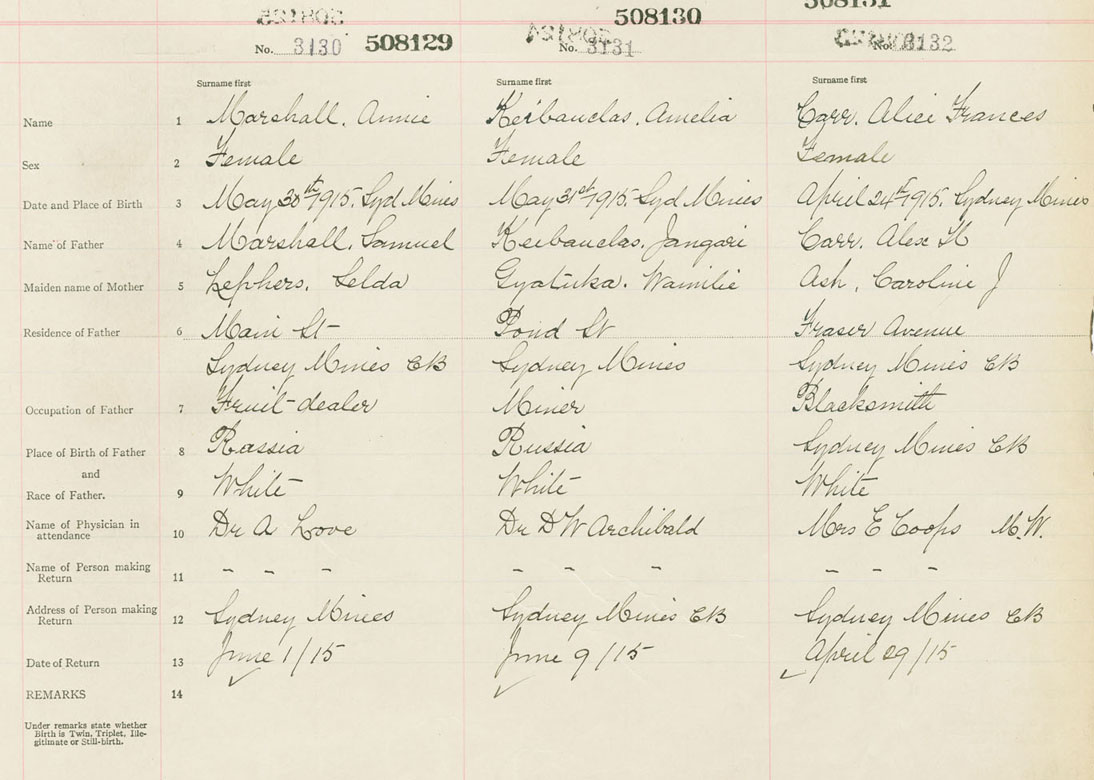 508130
508131
No. 3130 508129
No. 3131
No. 3132
Surname first Surname first Surname first
Name 1 Marshall. Annie Keibauclas. Amelia Carr. Alice Frances
Sex 2 Female Female Female
Date and Place of Birth 3 May 30th 1915. Syd Mines May 31st 1915. Syd Mines April 24th 1915. Sydney Mines
Name of Father 4 Marshall. Samuel Keibauclas. Jangari Carr. Alex
Maiden name of Mother 5 Selda Ash, Caroline J
Residence of Father 6 Main St Pond St Fraser Avenue
Sydney Mines CB Sydney Mines Sydney Mines CB
Occupation of Father 7 Fruit-dealer Miner Blacksmith
Place of Birth of Father 8 Russia Russia Sydney Mines CB
and
Race of Father. 9 White White White
Name of Physician in
attendance 10 Dr A Love Dr D W Archibald Mrs E Coops M.W.
Name of Person making
Return 11 - - - - - - - - -
Address of Person making
Return 12 Sydney Mines Sydney Mines CB Sydney Mines CB
Date of Return 13 June 1/15 June 9/15 April 29/15
REMARKS 14
Under remarks state whether
Birth is Twin, Triplet, Ille-
gitimate or Still-birth.